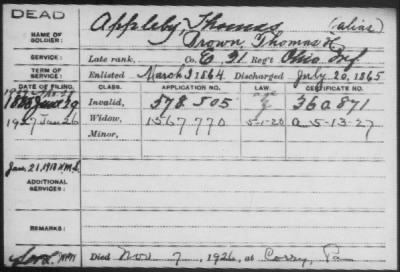 DEAD
NAME OF SOLDIER: Appleby, Thomas (alias)
Brown, Thomas H.
SERVICE: Late rank, Co. E, 91 Reg't Ohio Inf
TERM OF SERVICE: Enlisted March 3 1864 Discharged July 20, 1865
DATE OF FILING. CLASS. APPLICATION NO. LAW. CERTIFICATE NO.
Invalid, 578 505 360 871
1927 Jan 26 Widow, 1567 770 5-1-20 a 5-13-27
Minor,
Jan. 21, 1918
ADDITIONAL SERVICES:
REMARKS:
Died Nov 7, 1926, at Corry, Pa